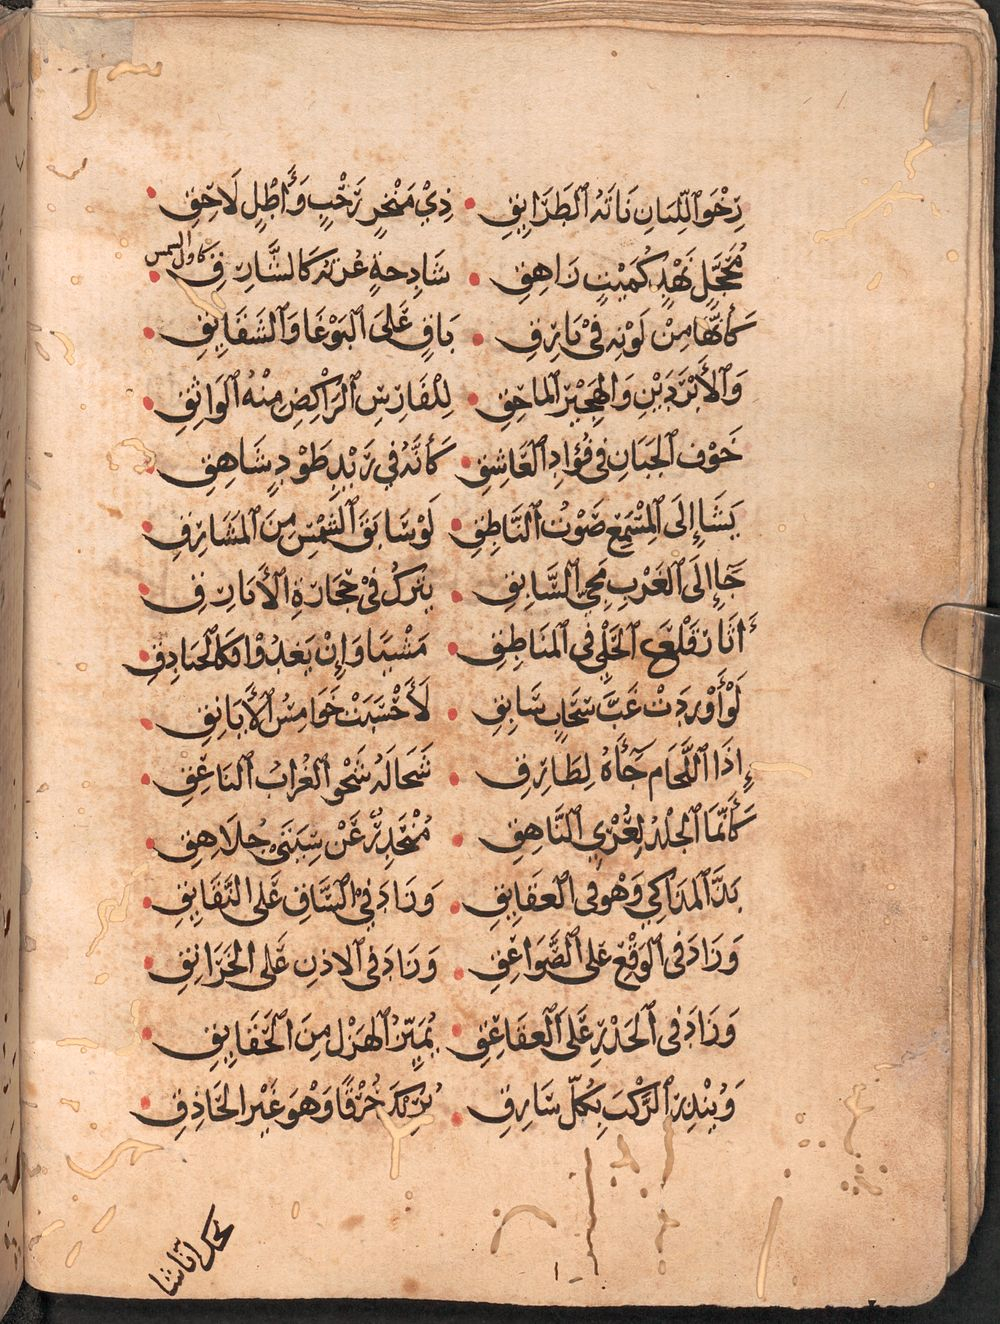 رِخْوِ اللِّبَانِ نَائِهِ الطَّرَائِقِ • ذِيْ مَنْخِرٍ رَحْبٍ وَأَطْلٍ لَاحِقِ
مُحَجَّلٍ نَهْدٍ كُمَيْتٍ زَاهِقِ • شَادِخَةٍ غُرَّتُهُ كَالشَّارِقِ
كَأَنَّهَا مِنْ لَوْنِهِ فِيْ بَارِقِ • بَاقٍ عَلَى الْبَوْغَا وَالشَّقَايِقِ
وَالْأَبْرَدَيْنِ وَالْهَجِيْرِ الْمَاحِقِ • لِلْفَارِسِ الرَّاكِضِ مِنْهُ الْوَاثِقِ
خَوْفُ الْجَبَانِ فِي فُؤَادِ الْعَاشِقِ • كَأَنَّهُ فِي رَيْدِ طَوْدٍ شَاهِقِ
يَشَا إِلَى الْمِسْمَعِ صَوْتُ النَّاطِقِ • لَوْ سَابَقَ الشَّمْسَ مِنَ الْمَشَارِقِ
جَا إِلَى الْغَرْبِ مَجِي السَّابِقِ • يَتْرُكُ فِيْ حِجَارَةِ الْأَبَارِقِ
أَثَارَ قَلْعِ الْحَلْيِ فِي الْمَنَاطِقِ • مَشْيًا وَإِنْ يَعْدُوْا فَكَالْخَنَادِقِ
لَوْ أُوْرِدَتْ غَبَّ سَحَابٍ سَابِقِ • لَأَحْسَبَتْ خَوَامِسُ الْأَيَانِقِ
إِذَا اللِّجَام جَأَهُ لِطَارِقِ • شَحَا لَهُ شَحْوَ الْغُرَابِ النَّاغِقِ
كَأَنَّمَا الْجِلْدُ لِعُرْيِ النَّاهِقِ • مُنْحَدِرٌ عَنْ سِيَتَيْ جُلَاهِقِ
بَذَّ الْمَذَاكِيْ وَهُوَ فِي الْعَقَايِقِ • وَزَادَ فِي السَّاقِ عَلَى النَّقَايِقِ
وَزَادَ فِي الْوَقْعِ عَلَى الصَّوَاعِقِ • وَزَادَ فِي الاذْنِ عَلَى الْخَرَانِقِ
وَزَادَ فِي الْحَذْرِ عَلَى الْعَقَاعِقِ • يُمَيِّزُ الْهَزْلَ مِنَ الْحَقَايِقِ
وَيُنْذِرُ الرَّكْبَ بِكُلِّ سَارِقِ • يُرِيْكَ خُرْقًا وَهْوَ غَيْرُ الْحَاذِقِ